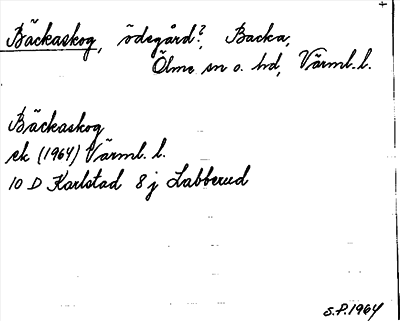 +
Bäckaskog, ödegård?, Backa,
Ölme sn o. hd, Värml. l.
Bäckaskog
ek (1964) Värml. l.
10 D Karlstad 8 j Labberud
S.P. 1964